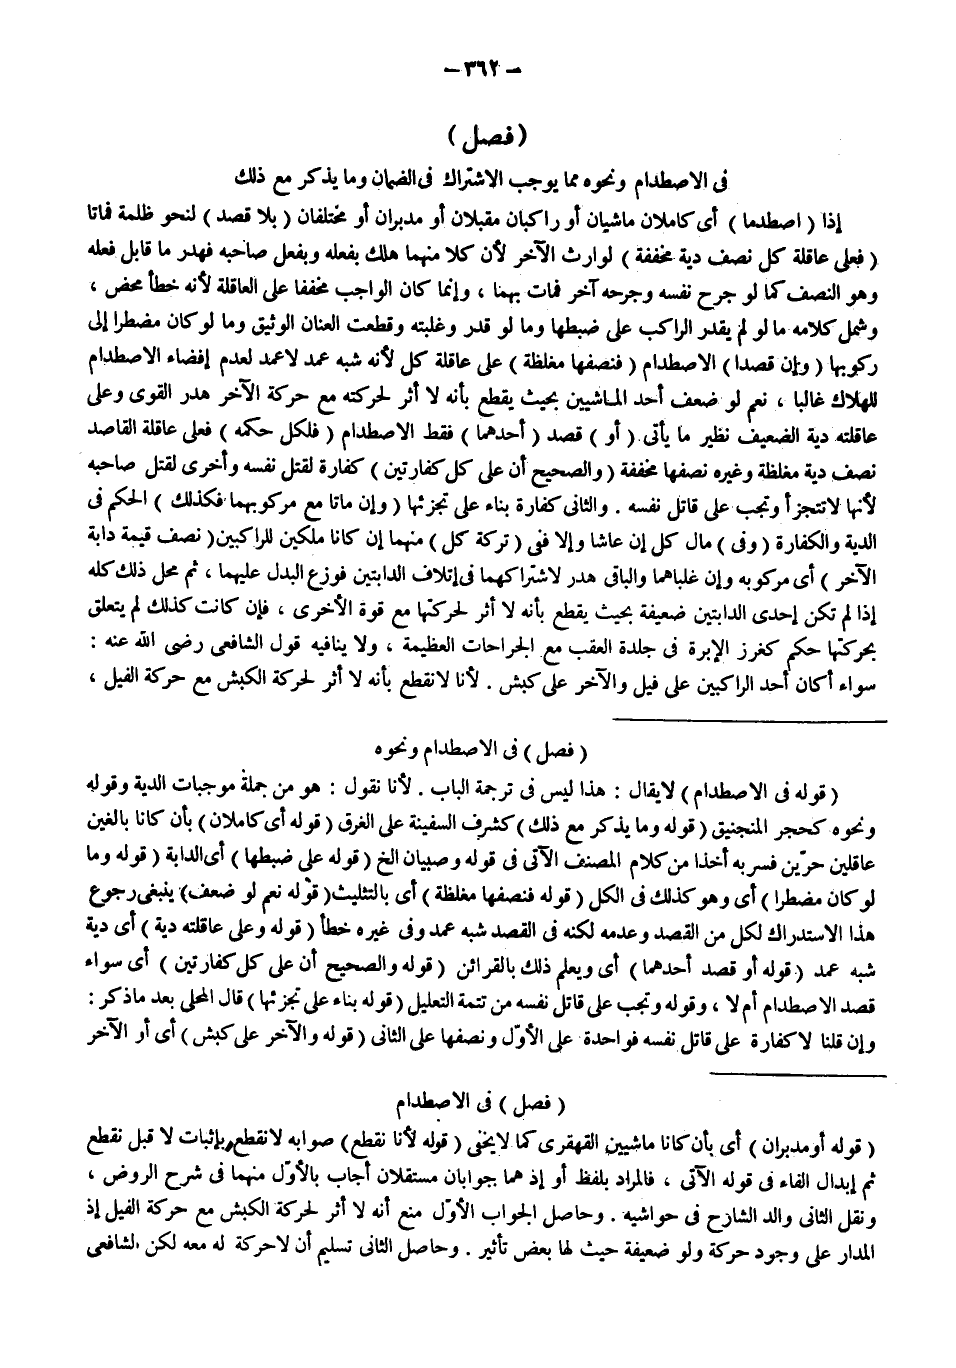 — ٣٦٢ —
( فصل )
فى الاصطدام ونحوه مما يوجب الاشتراك فى الضمان وما يذكر مع ذلك
إذا ( اصطدما ) أى كاملان ماشيان أو راكبان مقبلان أو مدبران أو مختلفان ( بلا قصد ) لنحو ظلمة فماتا
( فعلى عاقلة كل نصف دية مخففة ) لوارث الآخر لأن كلا منهما هلك بفعله وبفعل صاحبه فهدر ما قابل فعله
وهو النصف كما لو جرح نفسه وجرحه آخر فمات بهما ، وإنما كان الواجب مخففا على العاقلة لأنه خطأ محض ،
وشمل كلامه ما لو لم يقدر الراكب على ضبطها وما لو قدر وغلبته وقطعت العنان الوثيق وما لو كان مضطرا إلى
ركوبها ( وإن قصدا ) الاصطدام ( فنصفها مغلظة ) على عاقلة كل لأنه شبه عمد لاعمد لعدم إفضاء الاصطدام
للهلاك غالبا ، نعم لو ضعف أحد الماشيين بحيث يقطع بأنه لا أثر لحركته مع حركة الآخر هدر القوى وعلى
عاقلته دية الضعيف نظير ما يأتى ( أو ) قصد ( أحدهما ) فقط الاصطدام ( فلكل حكمه ) فعلى عاقلة القاصد
نصف دية مغلظة وغيره نصفها مخففة ( والصحيح أن على كل كفارتين ) كفارة لقتل نفسه وأخرى لقتل صاحبه
لأنها لاتتجزأ وتجب على قاتل نفسه . والثانى كفارة بناء على تجزئها ( وإن ماتا مع مركوبهما فكذلك ) الحكم فى
الدية والكفارة ( وفى ) مال كل إن عاشا وإلا ففى ( تركة كل ) منهما إن كانا ملكين للراكبين ( نصف قيمة دابة
الآخر ) أى مركوبه وإن غلباهما والباقى هدر لاشتراكهما فى إتلاف الدابتين فوزع البدل عليهما ، ثم محل ذلك كله
إذا لم تكن إحدى الدابتين ضعيفة بحيث يقطع بأنه لا أثر لحركتها مع قوة الأخرى ، فإن كانت كذلك لم يتعلق
بحركتها حكم كغرز الإبرة فى جلدة العقب مع الجراحات العظيمة ، ولا ينافيه قول الشافعى رضى الله عنه :
سواء أكان أحد الراكبين على فيل والآخر على كبش . لأنا لانقطع بأنه لا أثر لحركة الكبش مع حركة الفيل ،
( فصل ) فى الاصطدام ونحوه
( قوله فى الاصطدام ) لايقال : هذا ليس فى ترجمة الباب . لأنا نقول : هو من جملة موجبات الدية وقوله
ونحوه كحجر المنجنيق ( قوله وما يذكر مع ذلك ) كشرف السفينة على الغرق ( قوله أى كاملان ) بأن كانا بالغين
عاقلين حرّين فسر به أخذا من كلام المصنف الآتى فى قوله وصبيان الخ ( قوله على ضبطها ) أى الدابة ( قوله وما
لو كان مضطرا ) أى وهو كذلك فى الكل ( قوله فنصفها مغلظة ) أى بالتثليث ( قوله نعم لو ضعف ) ينبغى رجوع
هذا الاستدراك لكل من القصد وعدمه لكنه فى القصد شبه عمد وفى غيره خطأ ( قوله وعلى عاقلته دية ) أى دية
شبه عمد ( قوله أو قصد أحدهما ) أى ويعلم ذلك بالقرائن ( قوله والصحيح أن على كل كفارتين ) أى سواء
قصد الاصطدام أم لا ، وقوله وتجب على قاتل نفسه من تتمة التعليل ( قوله بناء على تجزئها ) قال المحلى بعد ماذكر :
وإن قلنا لا كفارة على قاتل نفسه فواحدة على الأوّل ونصفها على الثانى ( قوله والآخر على كبش ) أى أو الآخر
( فصل ) فى الاصطدام
( قوله أو مدبران ) أى بأن كانا ماشيين القهقرى كما لايخفى ( قوله لأنا نقطع ) صوابه لانقطع بإثبات لا قبل نقطع
ثم إبدال الفاء فى قوله الآتى ، فالمراد بلفظ أو إذ هما جوابان مستقلان أجاب بالأوّل منهما فى شرح الروض ،
ونقل الثانى والد الشارح فى حواشيه . وحاصل الجواب الأوّل منع أنه لا أثر لحركة الكبش مع حركة الفيل إذ
المدار على وجود حركة ولو ضعيفة حيث لها بعض تأثير . وحاصل الثانى تسليم أن لاحركة له معه لكن الشافعى